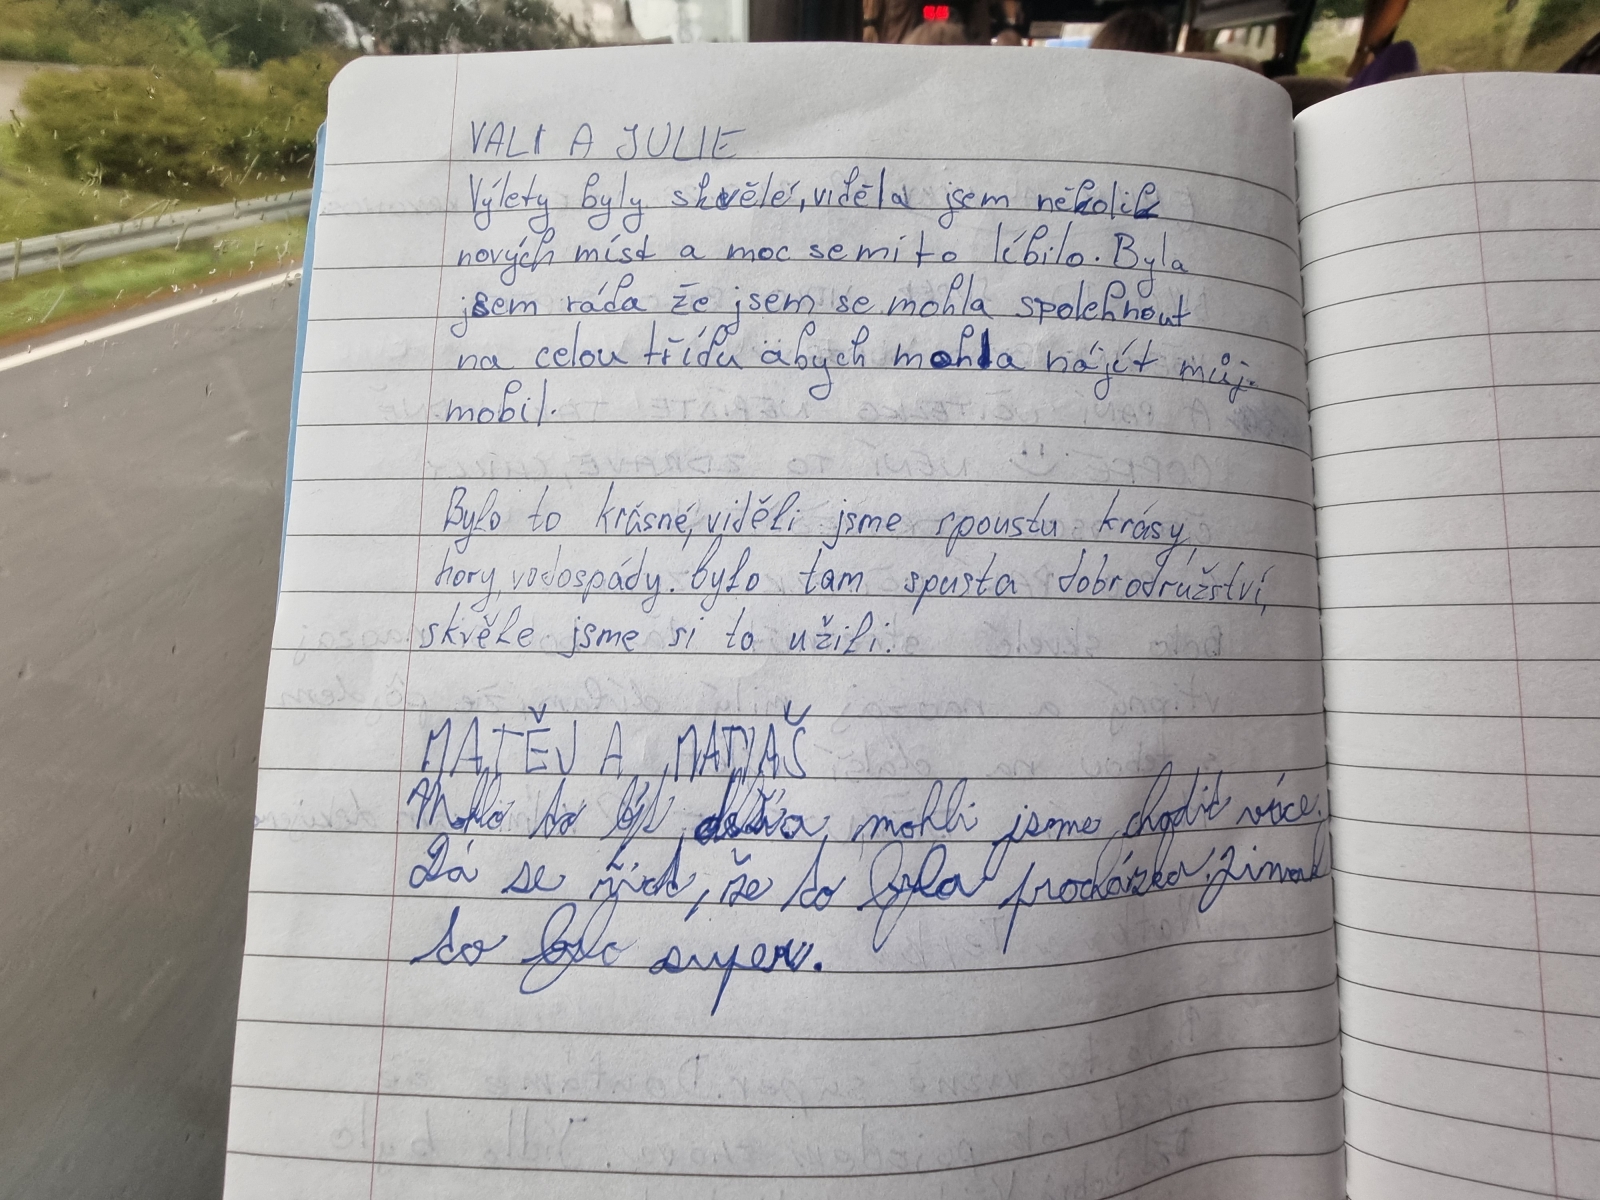 VALI A JULIE
Výlety byly skvělé, viděla jsem několik
nových míst a moc se mi to líbilo. Byla
jsem ráda že jsem se mohla spolehnout
na celou třídu abych mohla nájít můj
mobil.
Bylo to krásné, viděli jsme spoustu krásy,
hory, vodospády. bylo tam spusta dobrodružství,
skvěle jsme si to užili.
MATĚJ A MATYÁŠ
Mohlo to být delší, mohli jsme chodit více.
Dá se říct, že to byla procházka. Jinak
to bylo super.